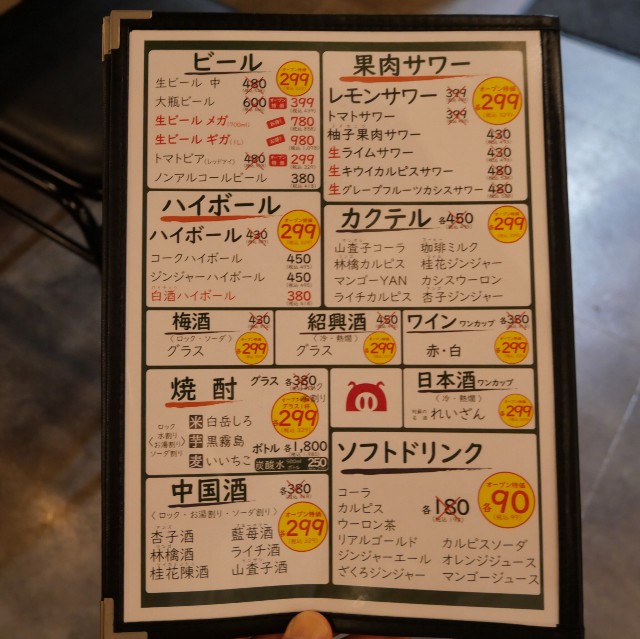 ビール
生ビール 中 480
オープン特価 299
大瓶ビール 600 399
生ビール メガ 780
生ビール ギガ(1L) 980
トマトビア(レッドアイ) 480 299
ノンアルコールビール 380
果肉サワー
レモンサワー 399
オープン特価 各299
トマトサワー 399
柚子果肉サワー 430
生ライムサワー 430
生キウイカルピスサワー 480
生グレープフルーツカシスサワー 480
ハイボール
ハイボール 430
オープン特価 299
コークハイボール 450
ジンジャーハイボール 450
白酒ハイボール 380
カクテル 各450
オープン特価 各299
山査子コーラ 珈琲ミルク
林檎カルピス 桂花ジンジャー
マンゴーYAN カシスウーロン
ライチカルピス 杏子ジンジャー
梅酒 430
〈ロック・ソーダ〉
グラス 各299
紹興酒 450
〈冷・熱燗〉
グラス 各299
ワイン ワンカップ 各380
赤・白 各299
焼酎 グラス 各380
ロック
水割り
お湯割り
ソーダ割り
オープン特価
各299
米 白岳しろ
芋 黒霧島
麦 いいちこ
ボトル 各1,800
炭酸水 250
日本酒 ワンカップ
〈冷・熱燗〉
れいざん 各299
中国酒 各380
〈ロック・お湯割り・ソーダ割り〉
オープン特価
各299
杏子酒 藍苺酒
林檎酒 ライチ酒
桂花陳酒 山査子酒
ソフトドリンク
各180
オープン特価
各90
コーラ
カルピス
ウーロン茶
リアルゴールド カルピスソーダ
ジンジャーエール オレンジジュース
ざくろジンジャー マンゴージュース